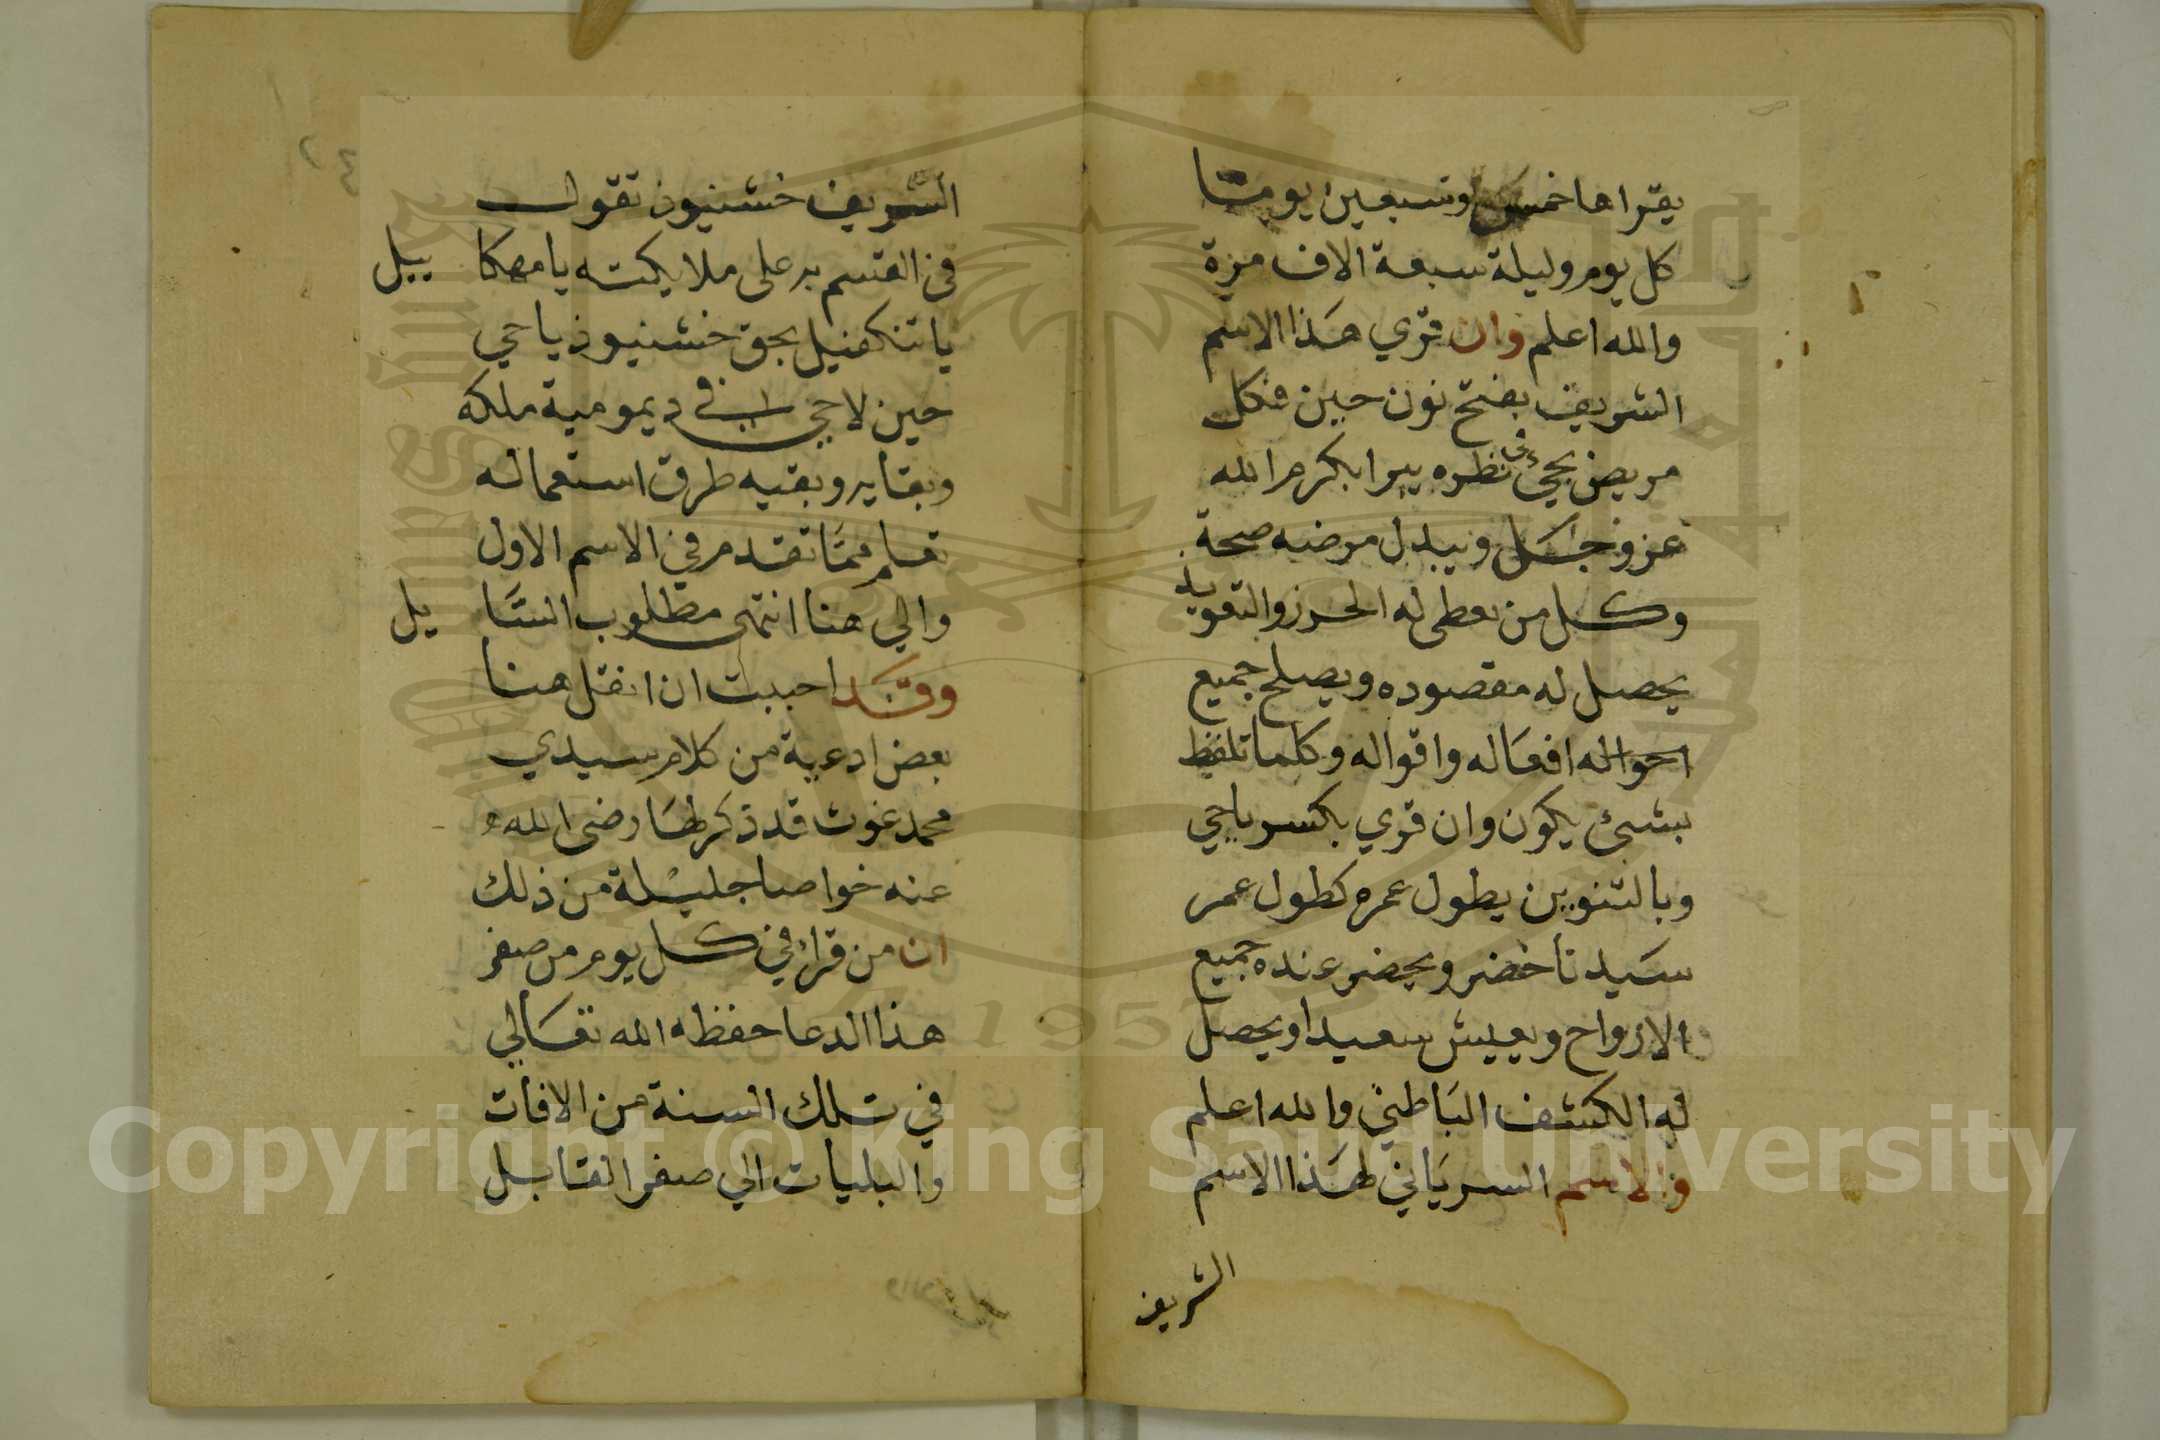 يقراها خمس وتسعين يوما
كل يوم وليلة سبعة الاف مرة
والله اعلم وان قري هذا الاسم
الشريف بفتح نون حين فكل
مريض يجئ في نظره يبرا بكرم الله
عز وجل ويبدل مرضه صحة
وكل من يعطى له الحرز والتعويذ
يحصل له مقصوده ويصلح جميع
احواله افعاله واقواله وكلما تلفظ
بشئ يكون وان قري بكسر ياحي
وبالتنوين يطول عمره كطول عمر
سيدنا خضر ويحضر عنده جميع
الارواح ويعيش سعيدا ويحصل
له الكشف الباطني والله اعلم
والاسم السرياني لهذا الاسم
الشريف
الشريف خشنيوذ تقول
في القسم به على ملايكته يا مهكاييل
يا تنكفيل بحق خشنيوذ ياحي
حين لاحي في ديمومية ملكه
وبقايه وبقيه طرق استعماله
تعلم مما تقدم في الاسم الاول
والي هنا انتهى مطلوب السايل
وقد احببت ان انقل هنا
بعض ادعية من كلام سيدي
محمد غوث قد ذكر لها رضى الله
عنه خواصا جليلة من ذلك
ان من قرا في كل يوم من صفر
هذا الدعا حفظه الله تعالي
في تلك السنة من الافات
والبليات الي صفر القابل
Copyright © King Saud University
King Saud University
1957